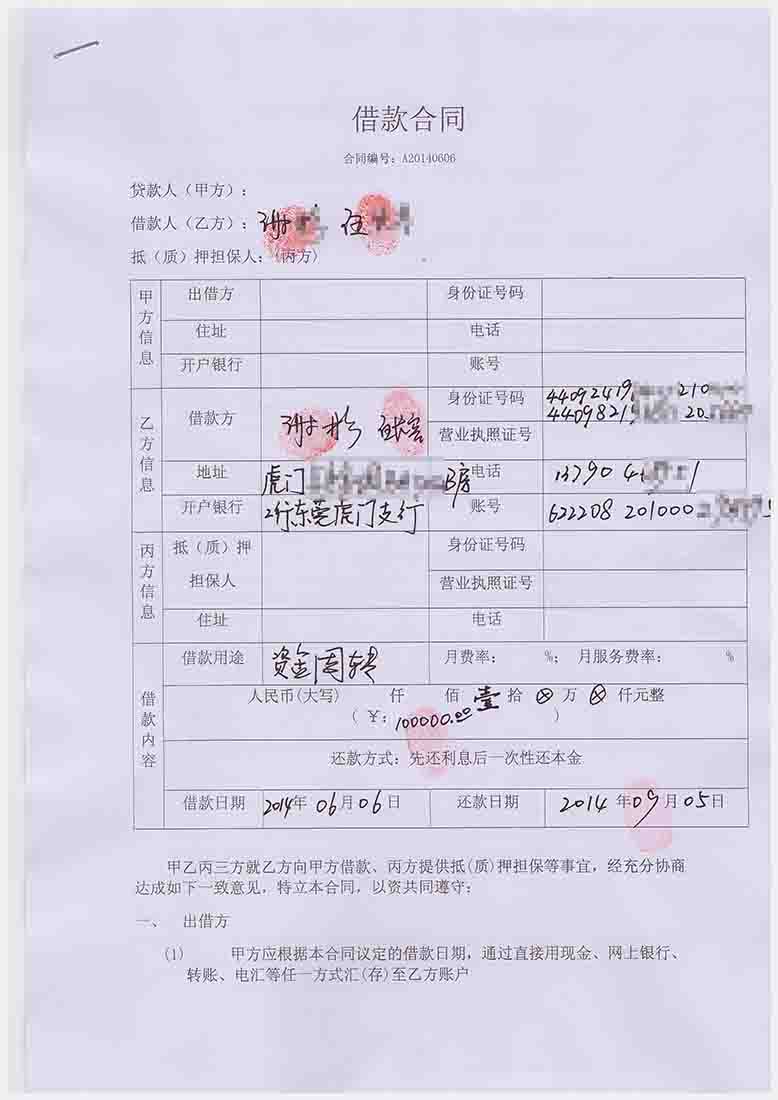 借款合同
合同编号：A20140606
贷款人（甲方）：
借款人（乙方）：谢
抵（质）押担保人：（丙方）
甲方信息
出借方 身份证号码
住址 电话
开户银行 账号
乙方信息
借款方 谢 身份证号码 44092419 210
44098219 20
营业执照证号
地址 虎门 B房 电话 13790 4 1
开户银行 工行东莞虎门支行 账号 622208 201000
丙方信息
抵（质）押担保人 身份证号码
营业执照证号
住址 电话
借款内容
借款用途 资金周转 月费率： %； 月服务费率： %
人民币(大写) 仟 佰 壹 拾 ⊗ 万 ⊗ 仟元整
（ ¥：100000.00 ）
还款方式：先还利息后一次性还本金
借款日期 2014年 06月 06日 还款日期 2014 年 09月 05日
甲乙丙三方就乙方向甲方借款、丙方提供抵(质)押担保等事宜，经充分协商
达成如下一致意见，特立本合同，以资共同遵守：
一、 出借方
(1) 甲方应根据本合同议定的借款日期，通过直接用现金、网上银行、
转账、电汇等任一方式汇(存)至乙方账户